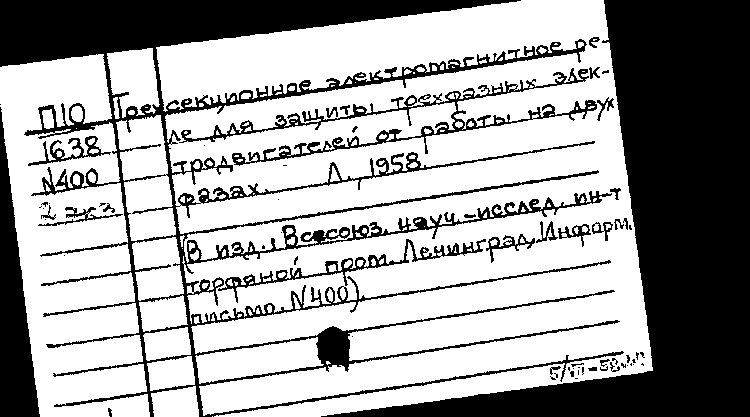 П10
1638
N400
2 экз
Трехсекционное электромагнитное ре-
ле для защиты трехфазных элек-
тродвигателей от работы на двух
фазах. Л., 1958.
(В изд.: Всесоюз. науч.-исслед. ин-т
торфяной пром. Ленинград, Информ.
письмо. N400).
5/VII-58